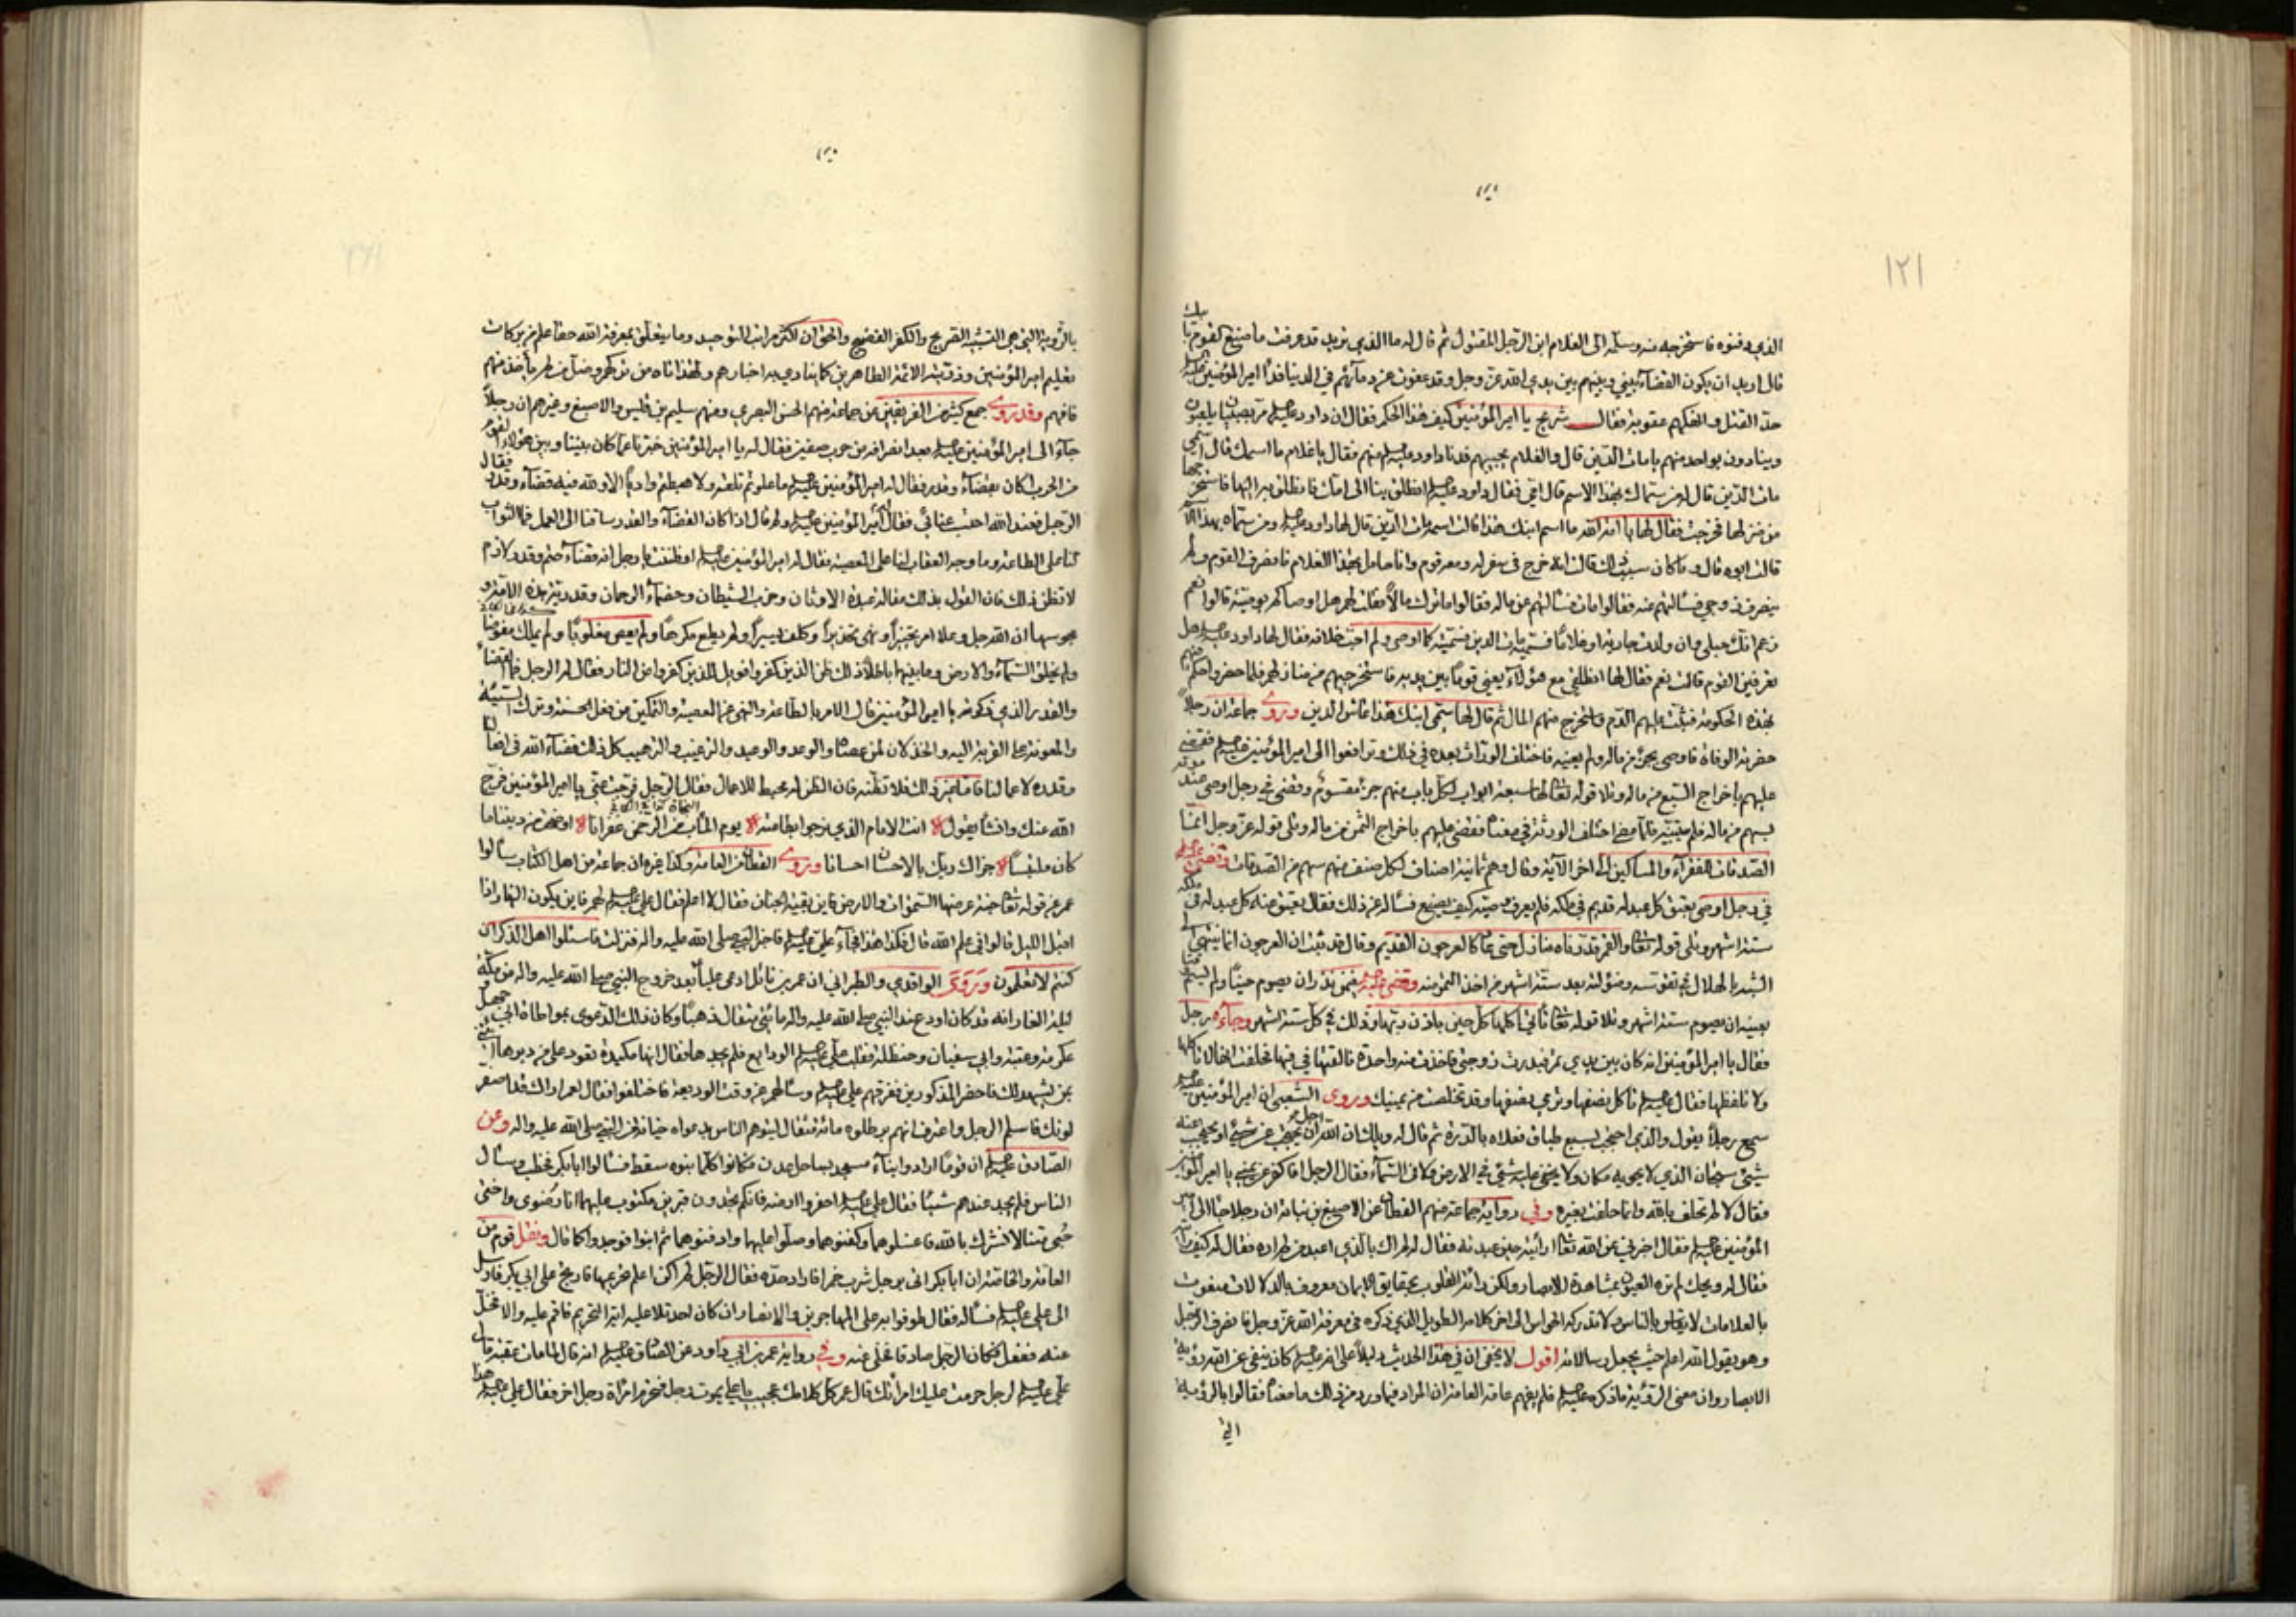 ١٢١
الذي دفنوه فاستخرجه منه وسلّمه الى الغلام ابن الرجل المقتول ثم قال له ما الذي تريد قد عرفت ما صنع القوم بابيك
قال اريد ان يكون القضاء بيني وبينهم بين يدي الله عز وجل وقد عفوت عن دمائهم في الدنيا فدرأ امير المؤمنين عليه السلم
حدّ القتل وانهكهم عقوبة فقال شريح يا امير المؤمنين كيف هذا الحكم فقال ان داود عليه السلم مرّ بصبيان يلعبون
وينادون بواحد منهم يا مات الدّين قال والغلام يجيبهم فدنا داود عليه السلم منهم فقال يا غلام ما اسمك قال اسمي
مات الدّين قال له من سمّاك بهذا الاسم قال امّي فقال داود عليه السلم انطلق بنا الى امّك فانطلق به اليها فاستخرجها
من منزلها فخرجت فقال لها يا امة الله ما اسم ابنك هذا قالت اسمه مات الدين قال لها داود عليه السلم ومن سمّاه بهذا الاسم
قالت ابوه قال وما كان سبب ذلك قالت انه خرج في سفر له ومعه قوم وانا حامل بهذا الغلام فانصرف القوم ولم
ينصرف زوجي فسألتهم عنه فقالوا مات فسألتهم عن ماله فقالوا ما ترك مالاً فقلت لهم هل اوصاكم بوصيّة قالوا نعم
زعم انّك حبلى وان ولدت جارية او غلامًا فسمّيه مات الدين فسمّيته كما اوصى ولم احبّ خلافه فقال لها داود عليه السلم هل
تعرفين القوم قالت نعم فقال لها انطلقي مع هؤلاء يعني قوماً بين يديه فاستخرجيهم من منازلهم فلما حضروا حكم فيهم
بهذه الحكومة فثبّت عليهم الدّم واستخرج منهم المال ثم قال لها سمّي ابنك هذا عاش الدين وروى جماعة ان رجلاً
حضرته الوفاة فاوصى بجزء من ماله ولم يعيّنه فاختلف الورّاث بعده في ذلك وترافعوا الى امير المؤمنين عليه السلم فقضى
عليهم باخراج السّبع من ماله وتلا قوله تعالى لها سبعة ابواب لكل باب منهم جزء مقسوم وقضى في رجل اوصى عند موته
بسهم من ماله فلم يبيّنه فلمّا مضى اختلف الورثة في معناه فقضى عليهم باخراج الثمن من ماله وتلى قوله عز وجل انما
الصّدقات للفقراء والمساكين الى اخر الآية وقال وهم ثمانية اصناف لكل صنف منهم سهم من الصدقات وقضى عليه السلم
في رجل اوصى بعتق كل عبد له قديم في ملكه فلم يعرف وصيّه كيف يصنع فسأله عن ذلك فقال يعتق عنه كل عبد له في ملكه
ستة اشهر وتلى قوله تعالى والقمر قدّرناه منازل حتى عاد كالعرجون القديم وقال قد ثبت ان العرجون انما ينتهي الى
الشبه بالهلال في تقوّسه وضؤلته بعد ستّة اشهر من اخذ الثمر منه وقضى عليه السلم فيمن نذر ان يصوم حينًا ولم يسمّ وقتا
بعينه ان يصوم ستة اشهر وتلا قوله تعالى تؤتي اكلها كل حين باذن ربّها وذلك في كل ستة اشهر وجاءه رجل
فقال يا امير المؤمنين انه كان بين يدي تمر فبدرت زوجتي فاخذت منه واحدة فالقتها في فيها فحلفت انها لا تاكلها
ولا تلفظها فقال عليه السلم تاكل نصفها وترمي نصفها وقد تخلصت من يمينك وروى الشعبي ان امير المؤمنين عليه السلم
سمع رجلاً يقول والذي احتجب بسبع طباق فعلاه بالدّرة ثم قال له ويلك ان الله اجل من ان يحتجب عن شيء او يحتجب عنه
شيء سبحان الذي لا يحويه مكان ولا يخفى عليه شيء في الارض ولا في السّماء فقال الرجل افاكفّر عن يميني يا امير المؤمنين
فقال لا لم تحلف بالله وانما حلفت بغيره وفي رواية جماعة منهم القطان عن الاصبغ بن نباتة ان رجلا جاء الى امير
المؤمنين عليه السلم فقال اخبرني عن الله تعالى ارأيته حين عبدته فقال له لم اك بالذي اعبد من لم اره فقال له كيف رأيته
فقال له ويحك لم تره العيون بمشاهدة الابصار ولكن رأته القلوب بحقايق الايمان معروف بالدلالات منعوت
بالعلامات لا يقاس بالناس ولا تدركه الحواس الى اخر كلامه الطويل الذي ذكره في معرفة الله عز وجل فانصرف الرجل
وهو يقول الله اعلم حيث يجعل رسالاته اقول لا يخفى ان في هذا الحديث دليلاً على انه عليه السلم كان ينفي عن الله رؤية
الابصار وان معنى الرؤية ما ذكره عليه السلم فلم يفهم عامّة العامة ان المراد فيما ورد من ذلك ما معناه فقالوا بالرؤية
التي
بالرؤية التي هي التشبيه الصّريح والكفر الفضيح والحق ان اكثر مراتب التوحيد وما يتعلّق بمعرفة الله حقا علم من بركات
تعليم امير المؤمنين وذريته الائمة الطاهرين كما ينادي به اخبارهم ولهذا تاه من تركهم وضلّ من لم ياخذ منهم
فافهم وقد روى جمع كثير من الفريقين عن جماعة منهم الحسن البصري ومنهم سليم بن قيس والاصبغ وغيرهم ان رجلاً
جاء الى امير المؤمنين عليه السلم بعد انصرافه من حرب صفين فقال له يا امير المؤمنين خبّرنا عمّا كان بيننا وبين هؤلاء القوم
من الحرب اكان بقضاء وقدر فقال له امير المؤمنين عليه السلم ما علوتم تلعة ولا هبطتم وادياً الا ولله فيه قضاء وقدر فقال
الرجل فعند الله احتسب عنائي فقال امير المؤمنين عليه السلم ولم قال اذا كان القضاء والقدر ساقنا الى العمل فما الثواب
لنا على الطاعة وما وجه العقاب لنا على المعصية فقال له امير المؤمنين عليه السلم اوظننت يا رجل انه قضاء حتم وقدر لازم
لا تظن ذلك فان القول بذلك مقالة عبدة الاوثان وحزب الشيطان وخصماء الرحمان وقدرية هذه الامة و
مجوسها ان الله جل وعلا امر تخييراً ونهى تحذيراً وكلف يسيراً ولم يطع مكرهًا ولم يعص مغلوبًا ولم يملك مفوضا
ولم يخلق السّماء والارض وما بينهما باطلا ذلك ظن الذين كفروا فويل للذين كفروا من النار فقال له الرجل فما القضاء
والقدر الذي ذكرته يا امير المؤمنين قال الامر بالطاعة والنهي عن المعصية والتمكين من فعل الحسنة وترك السّيئة
والمعونة على القربة اليه والخذلان لمن عصاه والوعد والوعيد والترغيب والترهيب كل ذلك قضاء الله في افعالنا
وقدره لاعمالنا فاما غير ذلك فلا تظنّه فان الظن له محبط للاعمال فقال الرجل فرّجت عنّي يا امير المؤمنين فرّج
الله عنك وانشأ يقول انت الامام الذي نرجو بطاعته يوم المآب من الرّحمن غفرانا اوضحت من ديننا ما
كان ملتبساً جزاك ربّك بالاحسان احسانا وروى القطان من العامة وكذا غيره ان جماعة من اهل الكتاب سألوا
عمر عن قوله تعالى جنة عرضها السّموات والارض فاين بقية الجنان فقال لا اعلم فقال علي عليه السلم لهم فاين يكون النهار اذا
اقبل الليل قالوا في علم الله قال فكذا هذا فجاء علي عليه السلم فاخبر النبي صلى الله عليه واله فنزلت فاسئلوا اهل الذكر ان
كنتم لا تعلمون وروى الواقدي والطبراني ان عمير بن وائل ادعى علياً بعد خروج النبي صلى الله عليه واله من مكّة
ليلة الغار انه قد كان اودع عند النبي صلى الله عليه واله مائتي مثقال ذهبًا وكان ذلك الدّعوى بمواطاة ابي جهل و
عكرمة وعتبة وابي سفيان وحنظلة فقلب علي عليه السلم الودايع فلم يجدها فقال انها مكيدة تعود على من دبّرها
من يشهد لك فاحضر المذكورين ففرّقهم علي عليه السلم وسألهم عن وقت الوديعة فاختلفوا فقال لعمير اراك قد اصفر
لونك فاسلم الرجل واعترف انهم برطلوه مائة مثقال ليتوهم الناس بدعواه خيانة من النبي صلى الله عليه واله وعن
الصّادق عليه السلم ان قومًا ارادوا بناء مسجد بساحل عدن فكانوا كلّما بنوه سقط فسألوا ابا بكر فخطب وسأل
الناس فلم يجد عندهم شيئا فقال علي عليه السلم احفروا ارضه فانكم تجدون قبرين مكتوب عليهما انا رضوى واختي
حُبى متنا لا نشرك بالله فاغسلوهما وكفنوهما وصلّوا عليهما وادفنوهما ثم ابنوا فوجدوا كما قال ونقل قوم من
العامة والخاصة ان ابا بكر اتى برجل شرب خمرا فاراد حدّه فقال الرّجل لم اكن اعلم تحريمها فارتج على ابي بكر فارسل
الى علي عليه السلم فسأله فقال طوفوا به على المهاجرين والانصار ان كان احد تلا عليه اية التحريم فاقم عليه والا فخلّ
عنه ففعل فكان الرجل صادقا فخلّى عنه وفي رواية عمر بن ابي داود عن الصّادق عليه السلم انه قال لما مات عقبة قال
علي عليه السلم لرجل حرمت عليك امرأتك قال عمر كل كلامك عجيب يا علي يموت رجل فتحرم امرأة رجل اخر فقال علي عليه السلم هذا